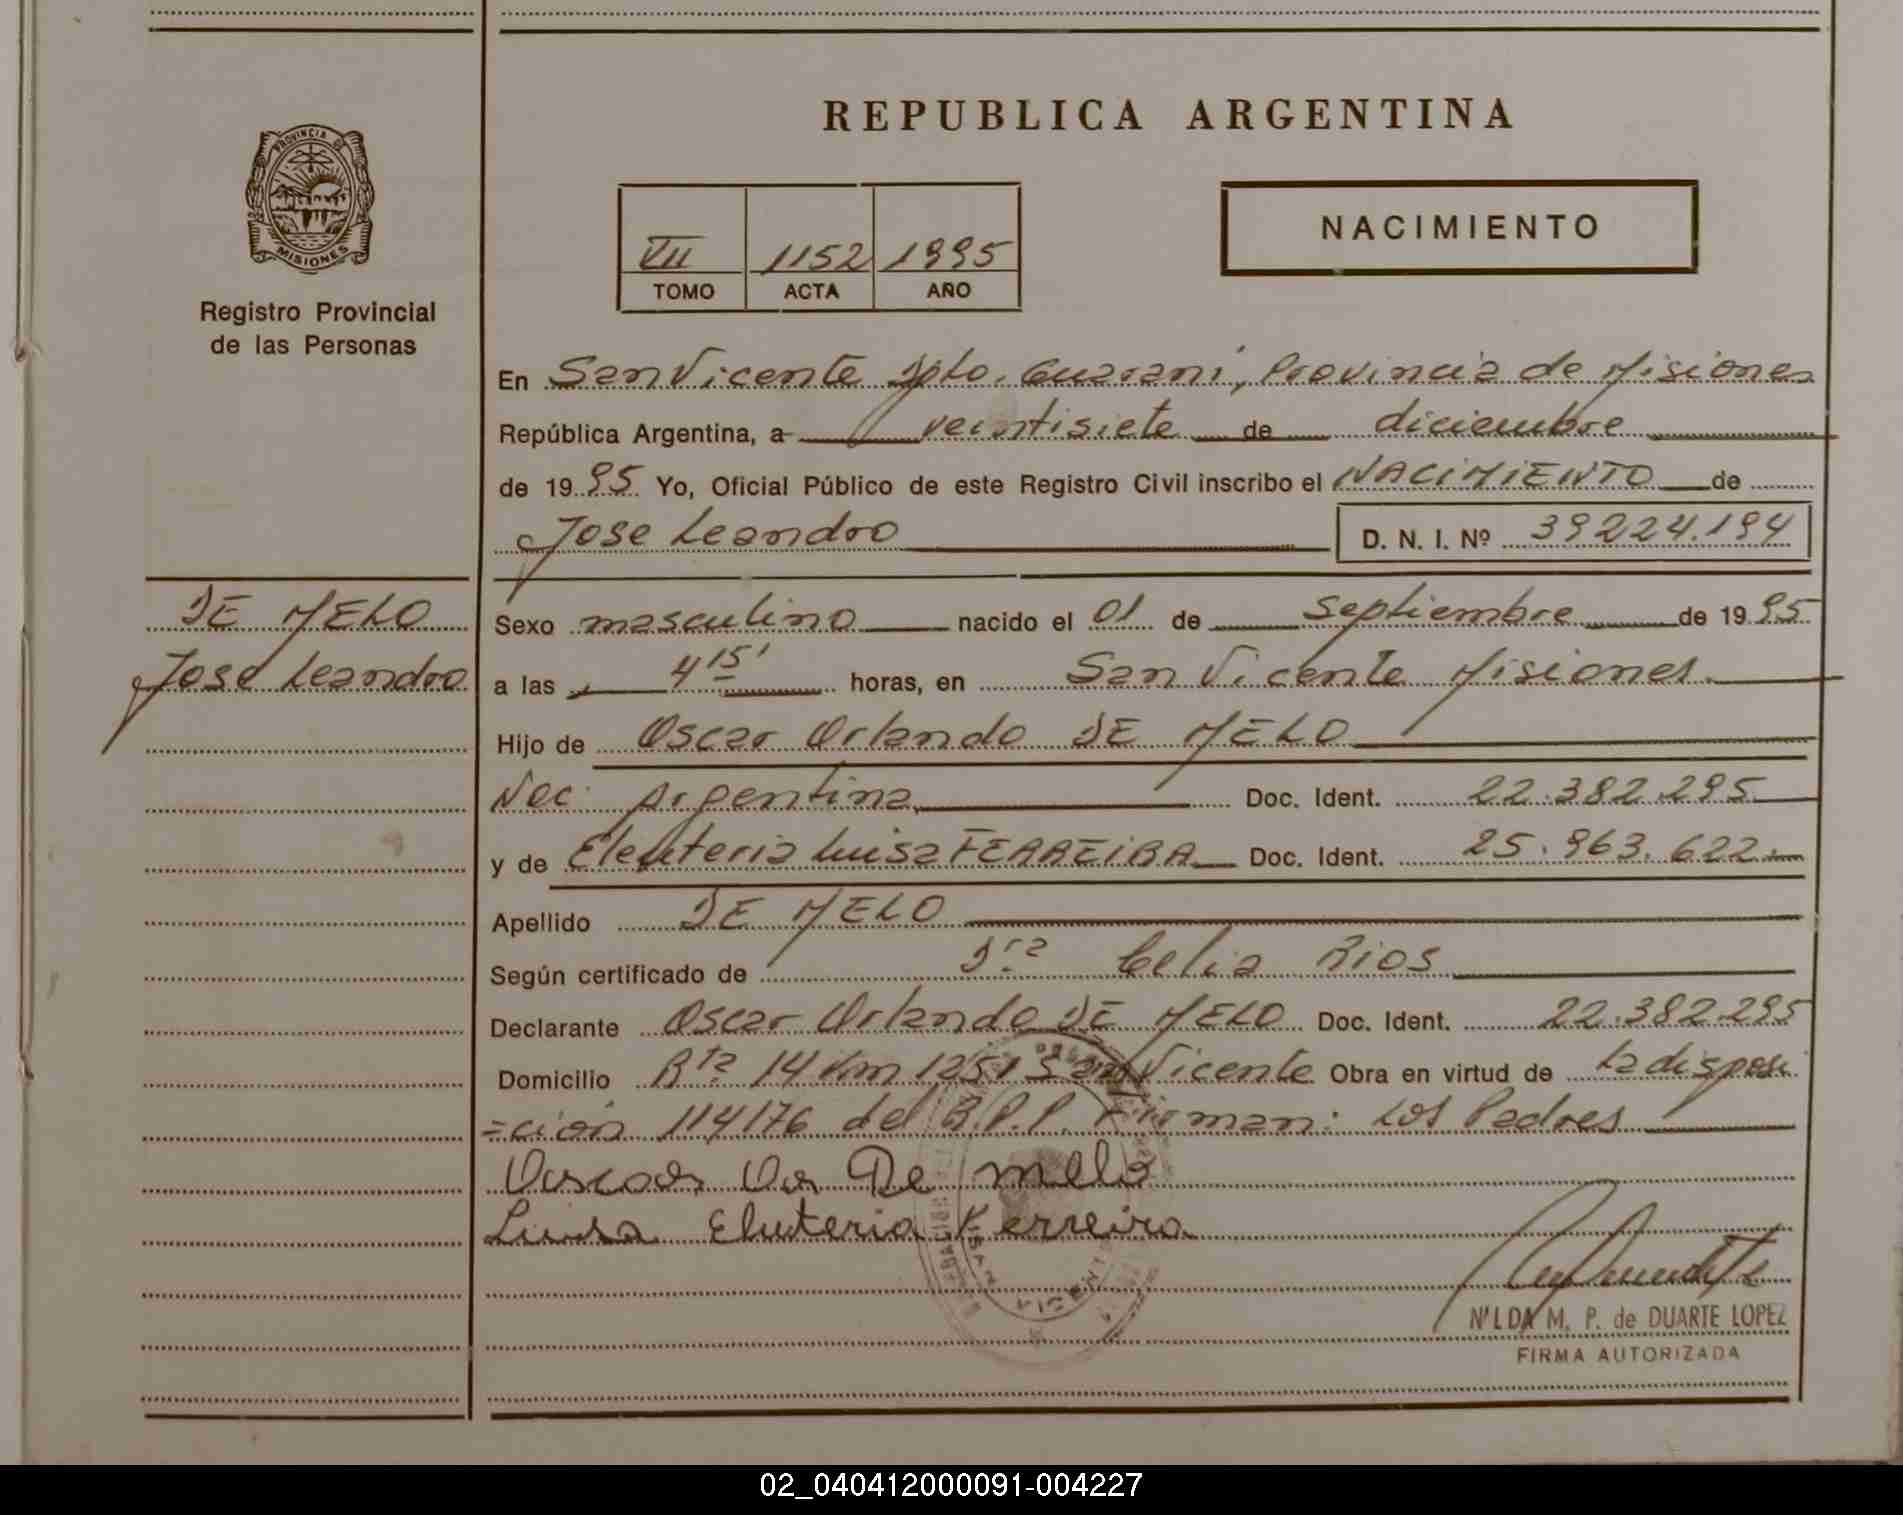 PROVINCIA DE
MISIONES
Registro Provincial
de las Personas
DE MELO
Jose Leandro
REPUBLICA ARGENTINA
VII 1152 1995
TOMO ACTA AÑO
NACIMIENTO
En San Vicente Dpto. Guarani, Provincia de Misiones
República Argentina, a veintisiete de diciembre
de 1995 Yo, Oficial Público de este Registro Civil inscribo el NACIMIENTO de
Jose Leandro D. N. I. Nº 39224.194
Sexo masculino nacido el 01 de Septiembre de 1995
a las 4 15' horas, en San Vicente Misiones.
Hijo de Oscar Orlando DE MELO
Nac. Argentina Doc. Ident. 22.382.295
y de Eleuteria Luisa FERREIRA Doc. Ident. 25.963.622.
Apellido DE MELO
Según certificado de Dra Celia Rios
Declarante Oscar Orlando DE MELO Doc. Ident. 22.382.295
Domicilio Rta 14 Km 1251 San Vicente Obra en virtud de la disposi
=cion 114/76 del R.P.P. Firman: Los Padres
De melo
Luisa Eluteria Ferreira
NILDA M. P. de DUARTE LOPEZ
FIRMA AUTORIZADA
02_040412000091-004227